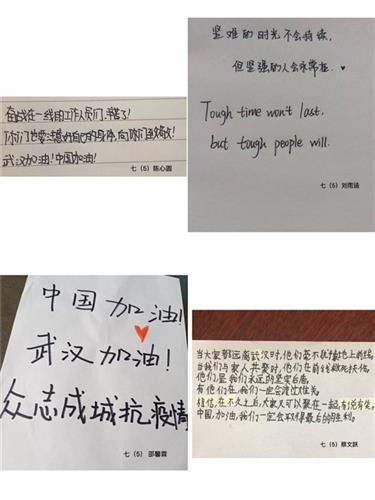 奋战在一线的工作人员们,辛苦了!
你们也要注意好自己的身体,向你们致敬!
武汉加油!中国加油!
七(5) 陈心圆
坚难的时光不会持续,
但坚强的人会永常在.
Tough time won't last,
but tough people will.
七(5) 刘雨涵
中国加油!
武汉加油!
众志成城抗疫情
七(5) 邵馨霖
当大家都远离武汉时,他们毫不犹豫地上前线,
当我们与家人共聚时,他们在前线救死扶伤,
他们是我们永远的坚定后盾,
有他们在,我们一定会渡过难关。
相信,在不久之后,大家又可以聚在一起,有说有笑。
中国,加油,我们一定会取得最后的胜利。
七(5) 蔡文跃